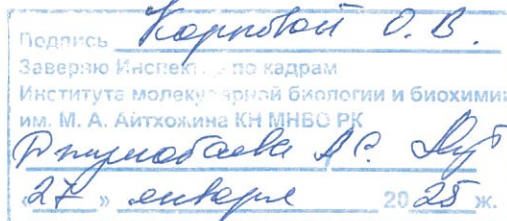 Подпись Карповой О. В.
Заверяю Инспектор по кадрам
Института молекулярной биологии и биохимии
им. М. А. Айтхожина КН МНВО РК
А. С.
«27» января 2025 ж.